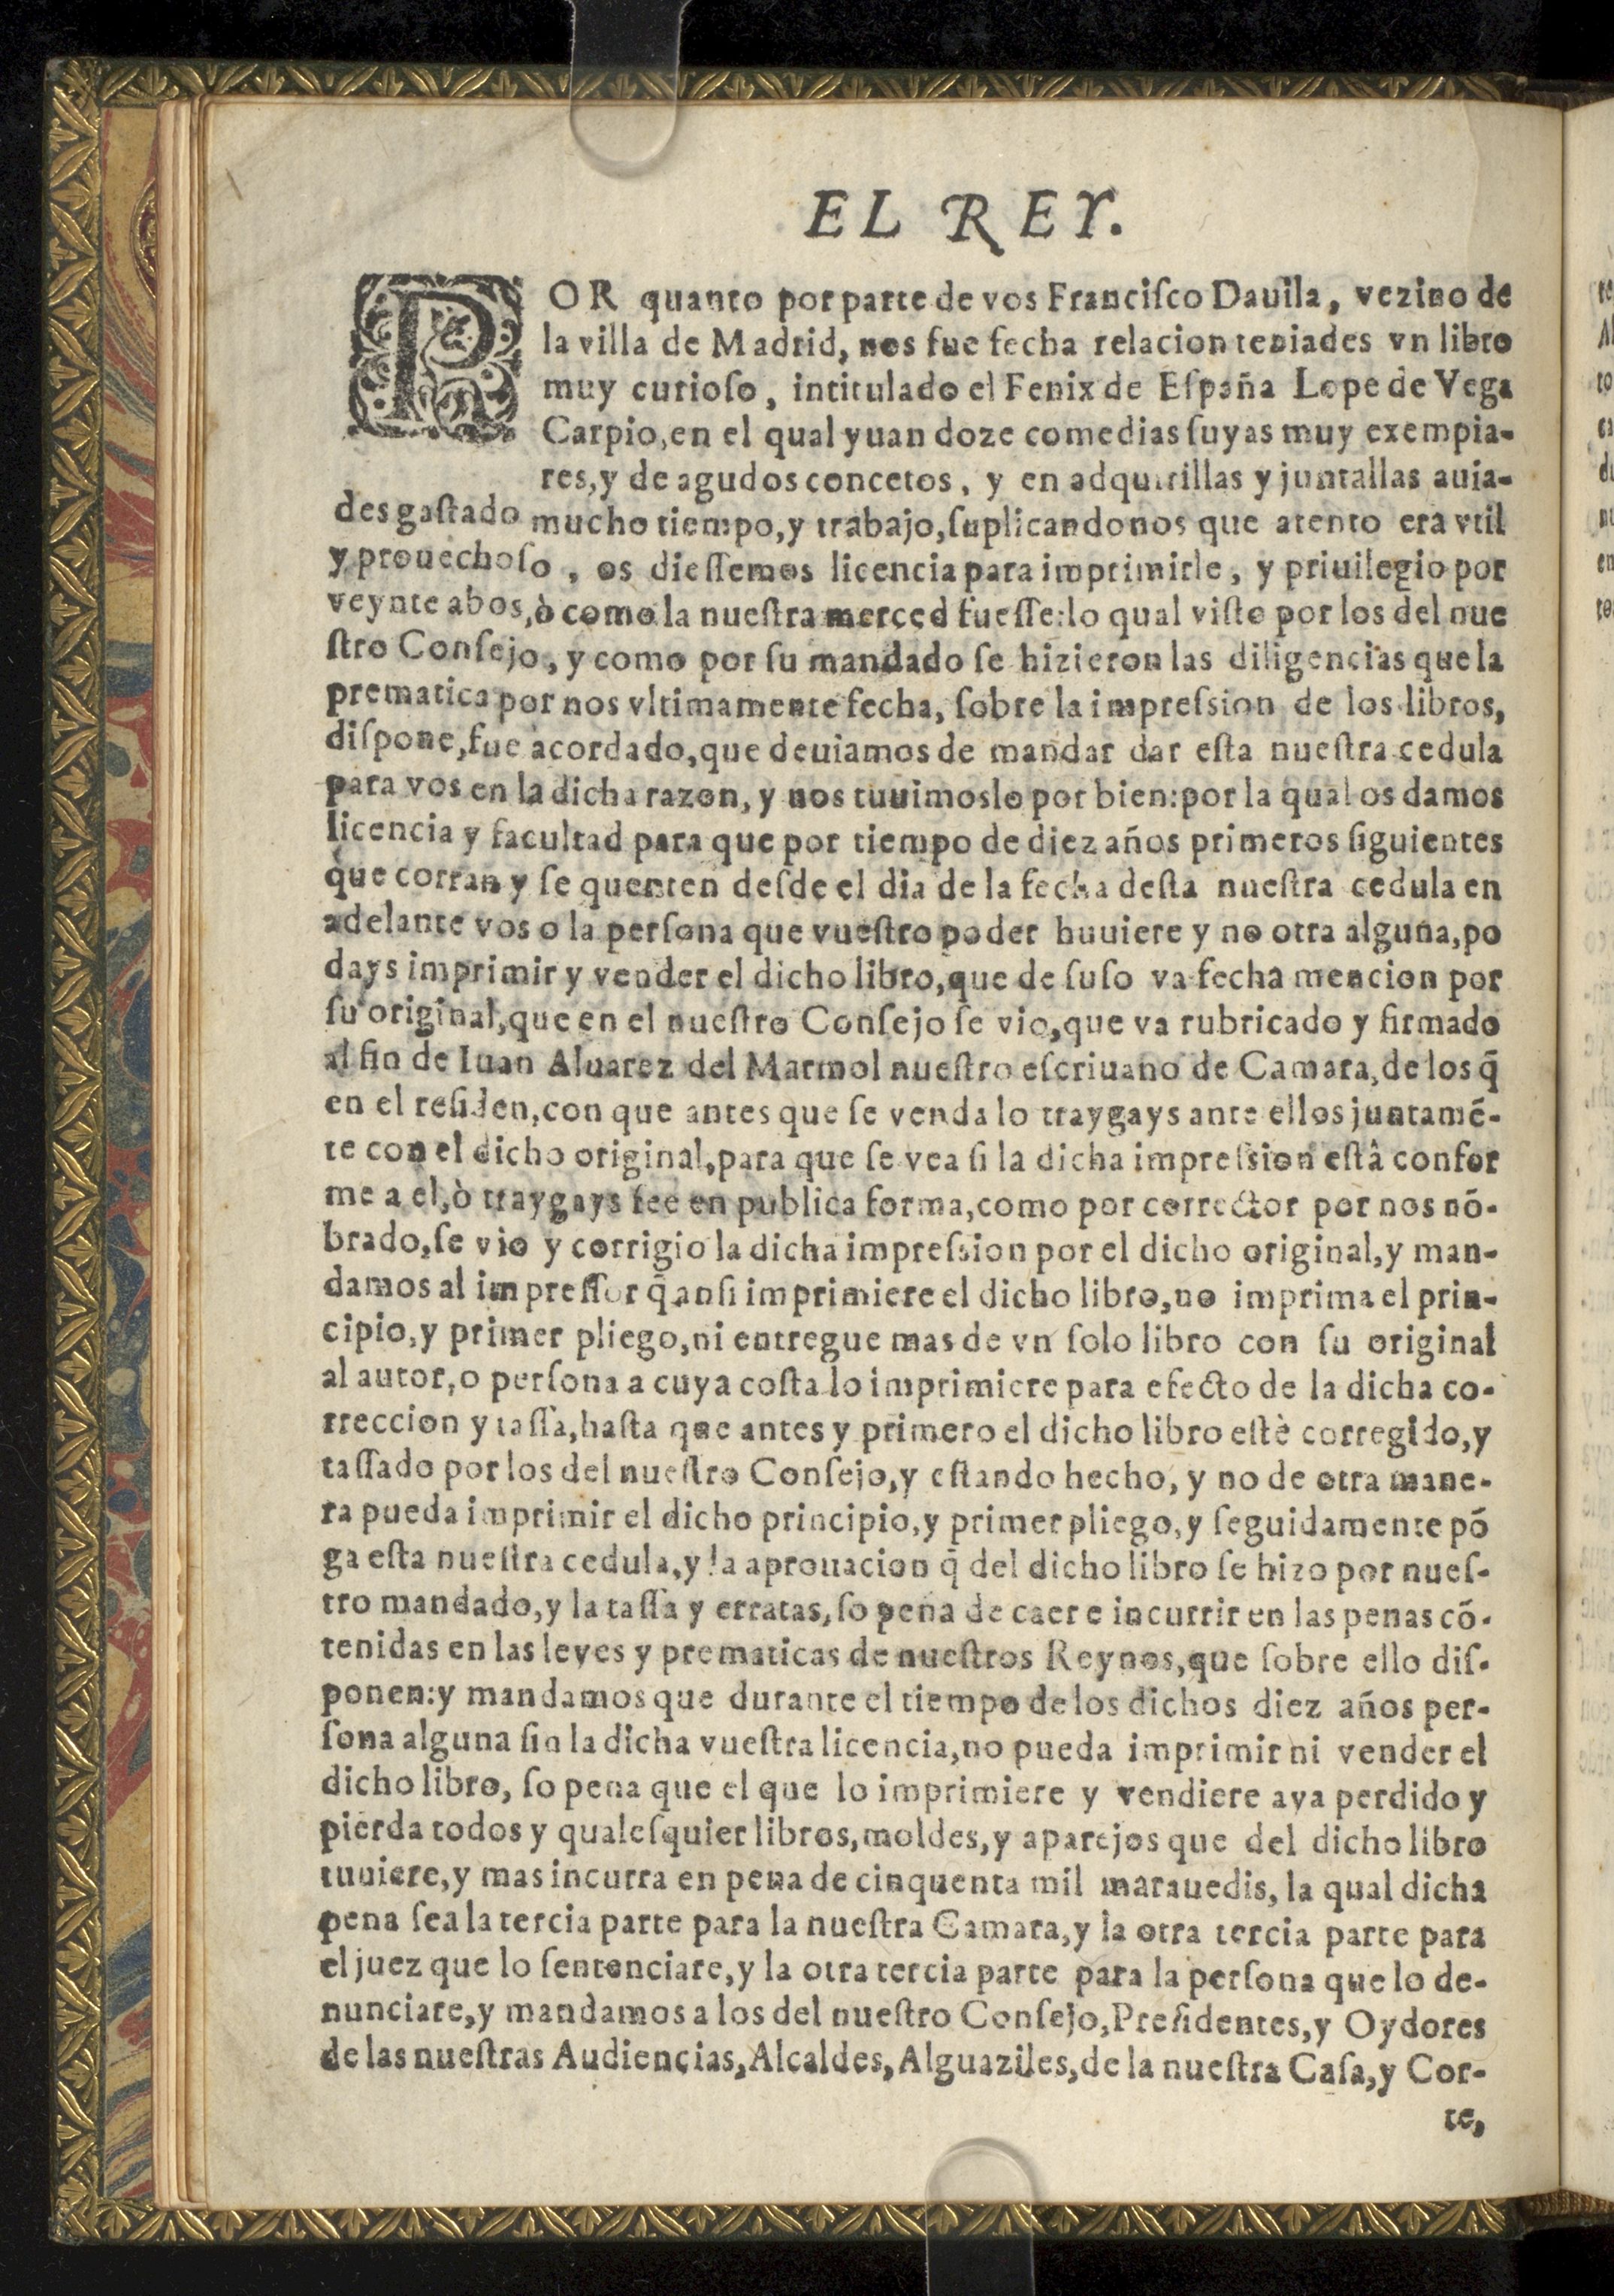 EL REY.
POR quanto por parte de vos Franciſco Dauila, vezino de
la villa de Madrid, nos fue fecha relacion teniades vn libro
muy curioſo, intitulado el Fenix de Eſpaña Lope de Vega
Carpio, en el qual yuan doze comedias ſuyas muy exempla-
res, y de agudos concetos, y en adquirillas y juntallas auia-
des gaſtado mucho tiempo, y trabajo, ſuplicandonos que atento era vtil
y prouechoſo, os dieſſemos licencia para imprimirle, y priuilegio por
veynte años, ò como la nueſtra merced fueſſe: lo qual viſto por los del nue
ſtro Conſejo, y como por ſu mandado ſe hizieron las diligencias que la
prematica por nos vltimamente fecha, ſobre la impreſsion de los libros,
diſpone, fue acordado, que deuiamos de mandar dar eſta nueſtra cedula
para vos en la dicha razon, y nos tuuimoslo por bien: por la qual os damos
licencia y facultad para que por tiempo de diez años primeros ſiguientes
que corran y ſe quenten deſde el dia de la fecha deſta nueſtra cedula en
adelante vos o la perſona que vueſtro poder huuiere y no otra alguna, po
days imprimir y vender el dicho libro, que de ſuſo va fecha mencion por
ſu original, que en el nueſtro Conſejo ſe vio, que va rubricado y firmado
al fin de Iuan Aluarez del Marmol nueſtro eſcriuano de Camara, de los q̃
en el reſiden, con que antes que ſe venda lo traygays ante ellos juntamẽ-
te con el dicho original, para que ſe vea ſi la dicha impreſsion eſtâ confor
me a el, ò traygays fee en publica forma, como por corrector por nos nõ-
brado, ſe vio y corrigio la dicha impreſsion por el dicho original, y man-
damos al impreſſor q̃ anſi imprimiere el dicho libro, no imprima el prin-
cipio, y primer pliego, ni entregue mas de vn ſolo libro con ſu original
al autor, o perſona a cuya coſta lo imprimiere para efecto de la dicha co-
rreccion y taſſa, haſta que antes y primero el dicho libro eſtè corregido, y
taſſado por los del nueſtro Conſejo, y eſtando hecho, y no de otra mane-
ra pueda imprimir el dicho principio, y primer pliego, y ſeguidamente põ
ga eſta nueſtra cedula, y la aprouacion q̃ del dicho libro ſe hizo por nueſ-
tro mandado, y la taſſa y erratas, ſo pena de caer e incurrir en las penas cõ-
tenidas en las leyes y prematicas de nueſtros Reynos, que ſobre ello diſ-
ponen: y mandamos que durante el tiempo de los dichos diez años per-
ſona alguna ſin la dicha vueſtra licencia, no pueda imprimir ni vender el
dicho libro, ſo pena que el que lo imprimiere y vendiere aya perdido y
pierda todos y qualeſquier libros, moldes, y aparejos que del dicho libro
tuuiere, y mas incurra en pena de cinquenta mil marauedis, la qual dicha
pena ſea la tercia parte para la nueſtra Camara, y la otra tercia parte para
el juez que lo ſentenciare, y la otra tercia parte para la perſona que lo de-
nunciare, y mandamos a los del nueſtro Conſejo, Preſidentes, y Oydores
de las nueſtras Audiencias, Alcaldes, Alguaziles, de la nueſtra Caſa, y Cor-
te,